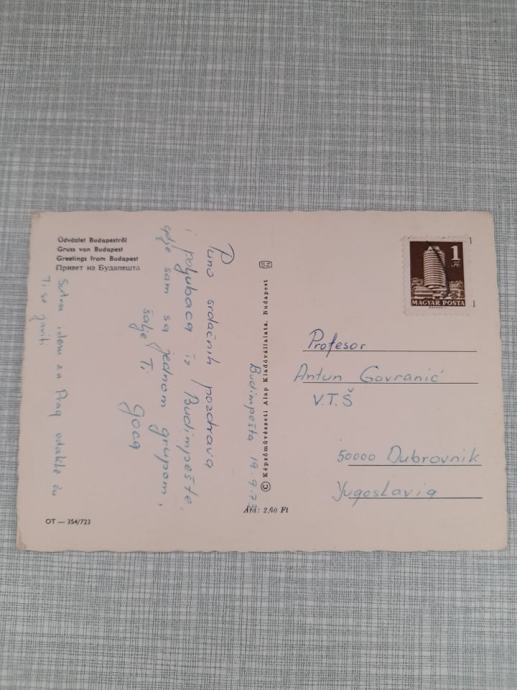 Üdvözlet Budapestről
Gruss von Budapest
Greetings from Budapest
Привет из Будапешта
Puno srdačnih pozdrava
i poljubaca iz Budimpešte,
gdje sam sa jednom grupom,
šalje Ti
Goga
Sutra idem za Prag odakle ću
Ti se javiti
OT — 354/723
Budimpešta 19.9.7
© Képzőművészeti Alap Kiadóvállalata, Budapest
Ára: 2,60 Ft
1
Ft
MAGYAR POSTA
Profesor
Antun Govranić
V.T.Š
50000 Dubrovnik
Yugoslavia